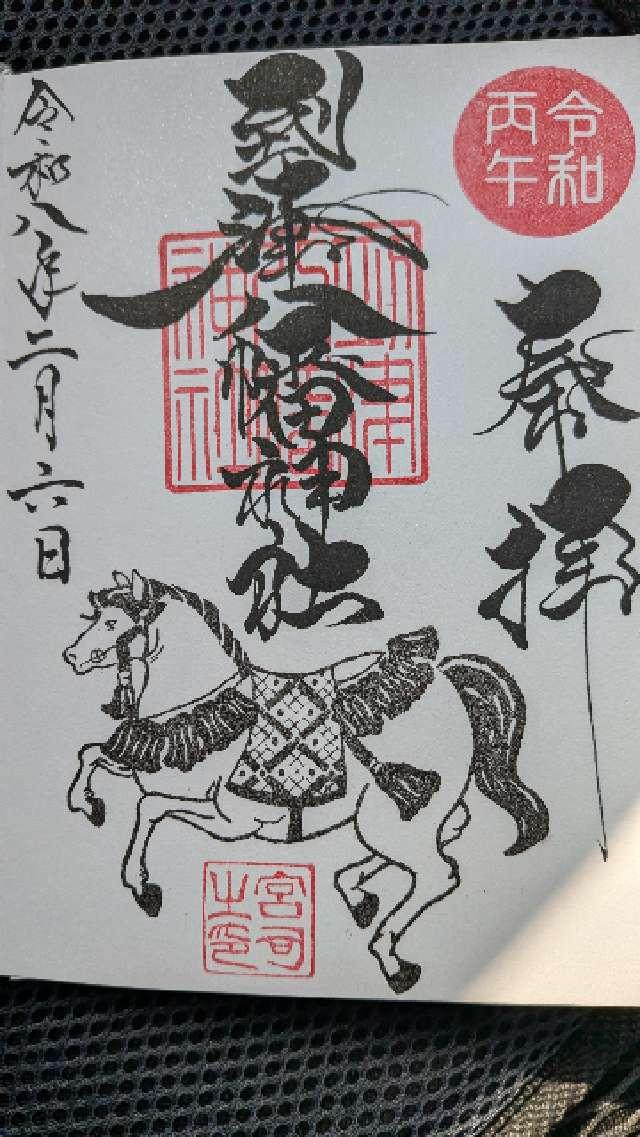 令和
丙午
奉拝
津八幡神社
神社
令和八年二月六日
宮司
之印